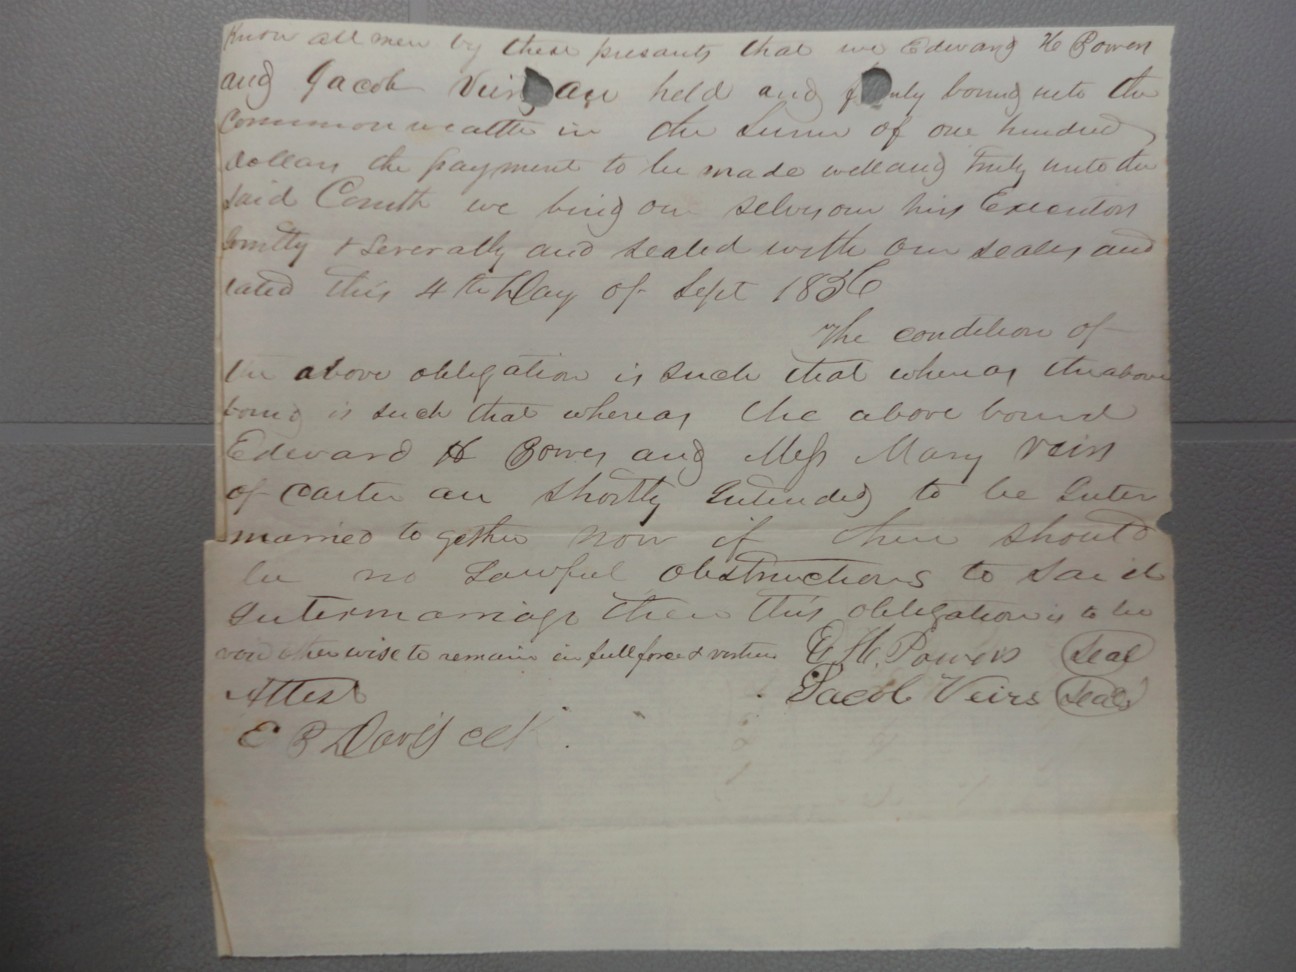 Know all men by these presants that we Edward H Powers
and Jacob Veirs are held and f nly bound unto the
Commonwealth in the Sum of one hundred
dollars the payment to be made well and Truly unto the
Said Comth we bind our selves our hirs Executors
Jointly & Severally and sealed with our seales and
dated this 4th Day of Sept 1856
The condition of
the above obligation is such that whereas the above
bound is such that whereas the above bound
Edward H Powers and Miss Mary Veirs
of Carter are shortly Intended to be Inter
married to gether now if there should
be no Lawful obstructions to said
Intermarriage then this obligation is to be
void other wise to remain in full force & vertue E. H. Powers Seal
Attest Jacob Veirs Seal
E B Davis clk